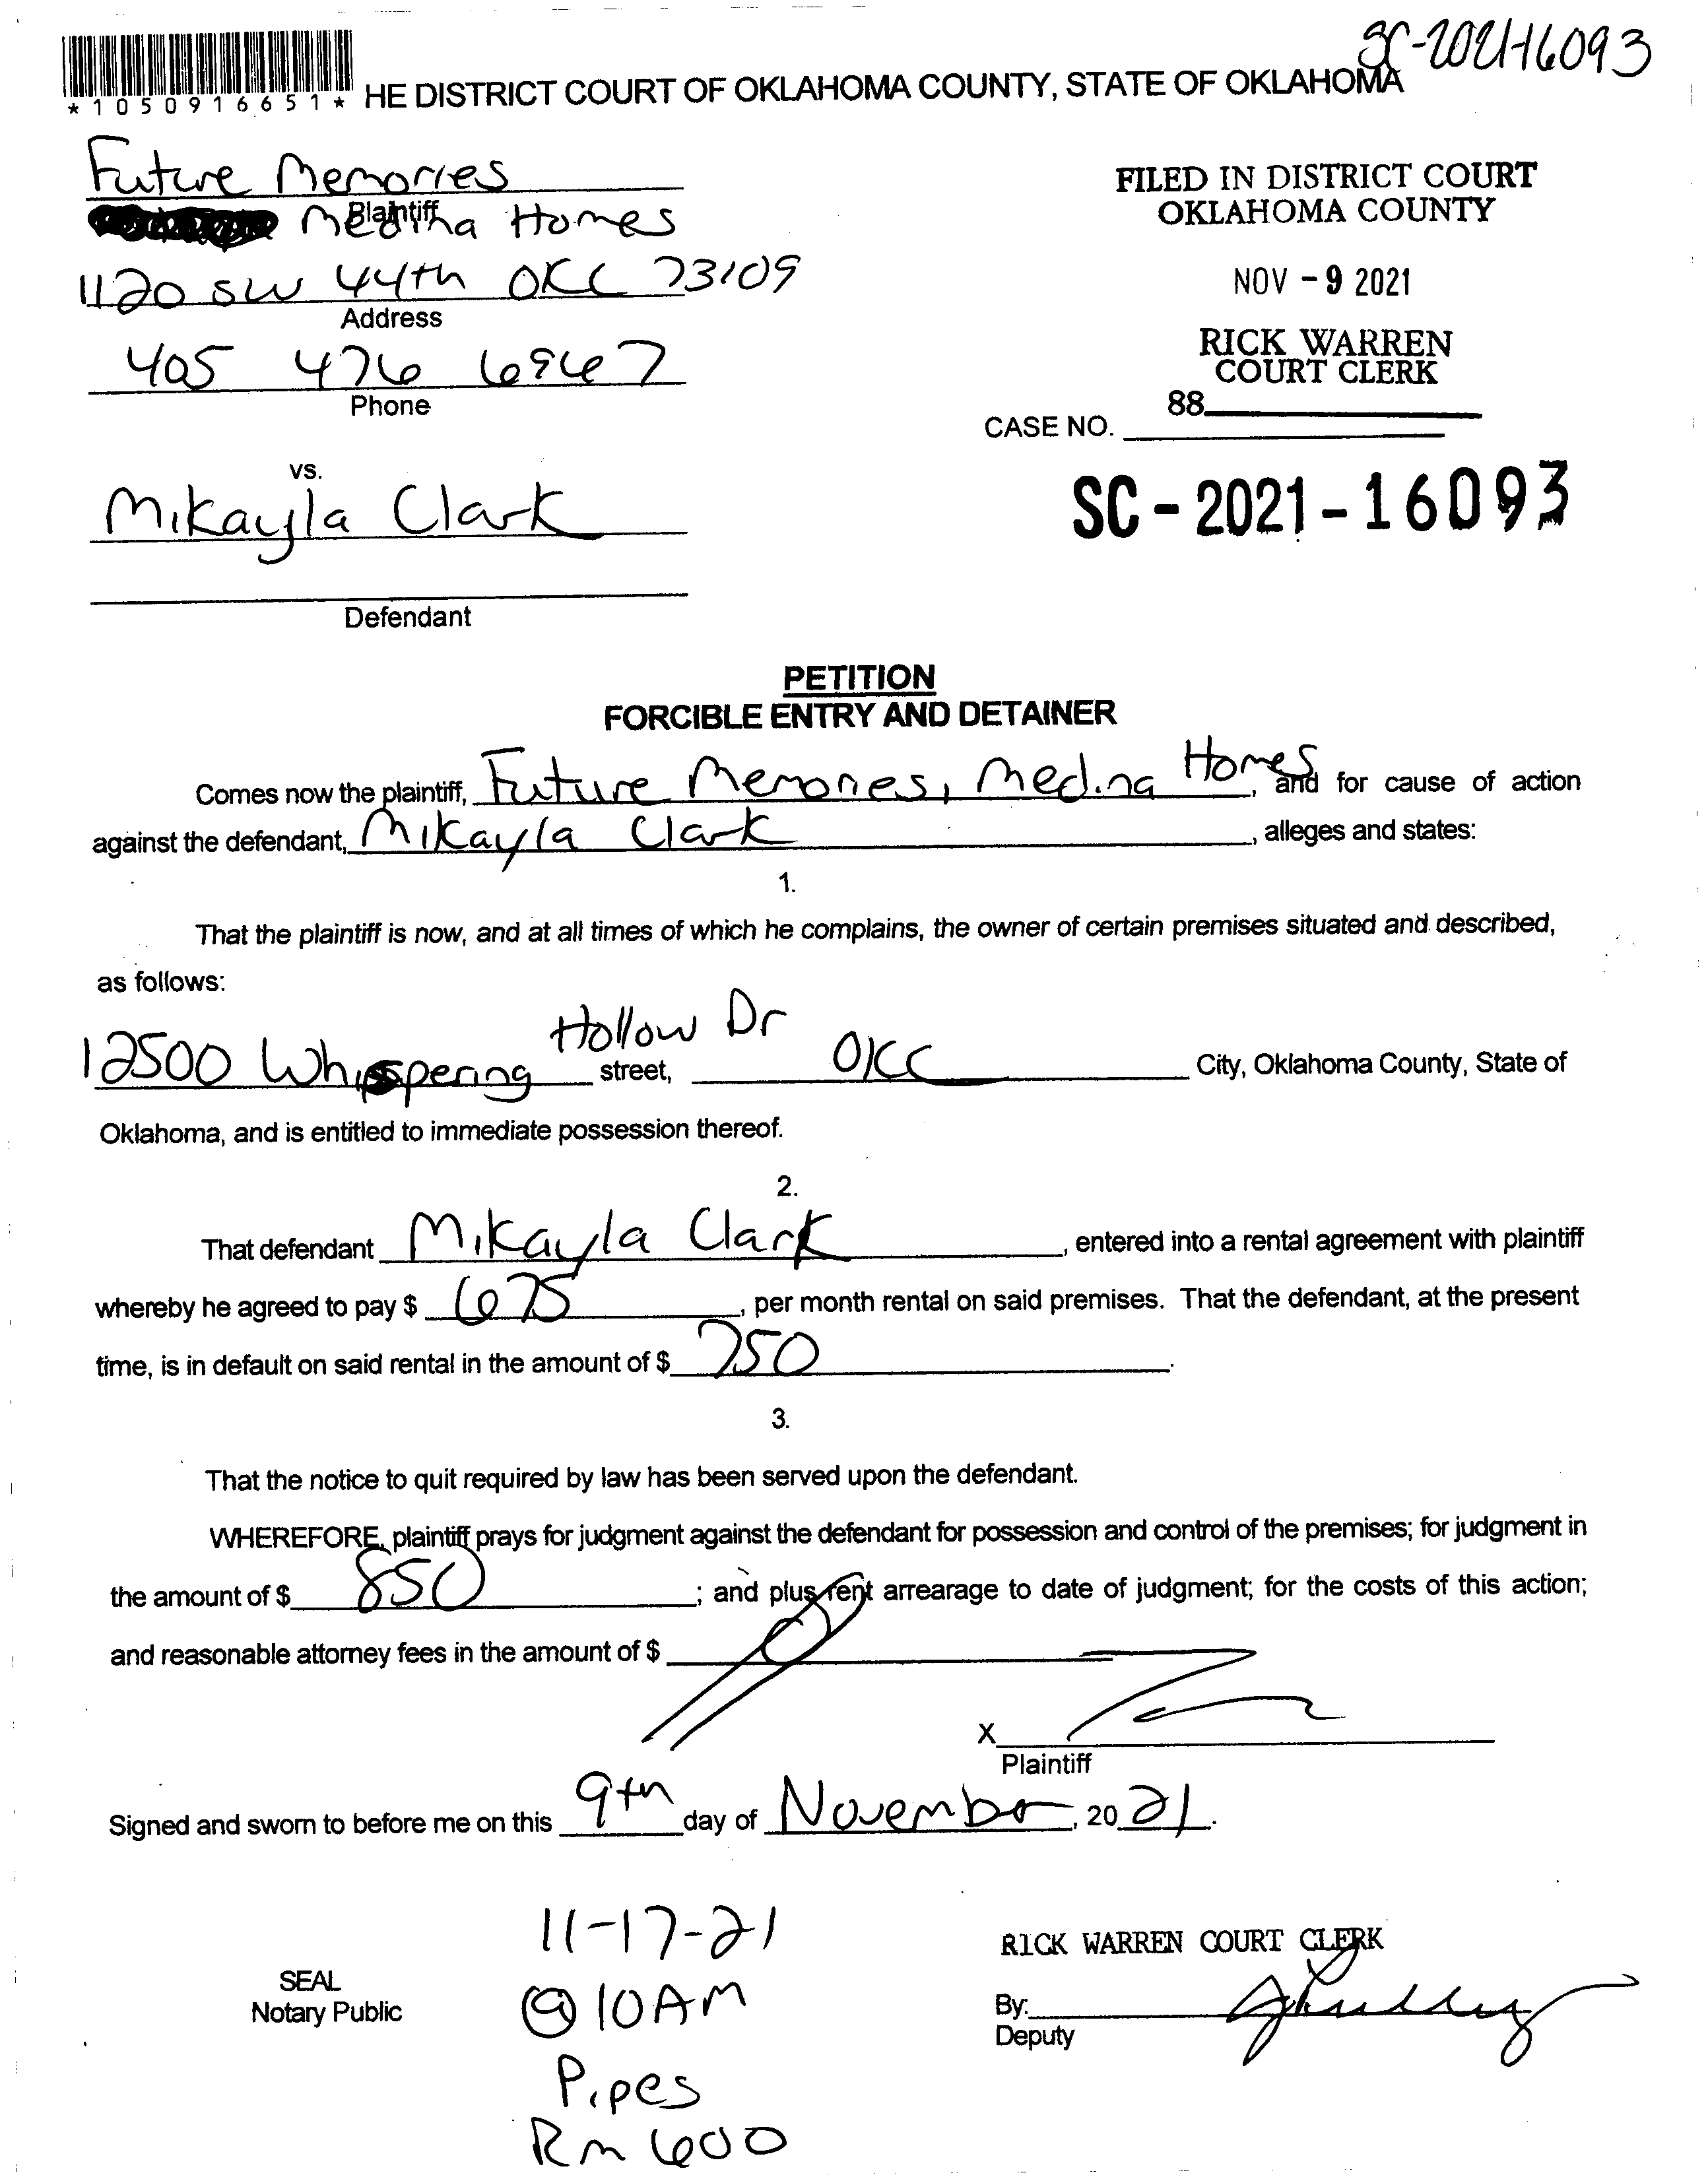 SC-2021-16093
*1050916651* HE DISTRICT COURT OF OKLAHOMA COUNTY, STATE OF OKLAHOMA
Future Memories
Plaintiff
Medina Homes
1120 SW 44th OKC 73109
Address
405 476 6967
Phone
FILED IN DISTRICT COURT
OKLAHOMA COUNTY
NOV - 9 2021
RICK WARREN
COURT CLERK
88
CASE NO.
SC - 2021 - 16093
vs.
Mikayla Clark
Defendant
PETITION
FORCIBLE ENTRY AND DETAINER
Comes now the plaintiff, Future Memories, Medina Homes, and for cause of action
against the defendant, Mikayla Clark, alleges and states:
1.
That the plaintiff is now, and at all times of which he complains, the owner of certain premises situated and described,
as follows:
12500 Whispering Hollow Dr street, OKC City, Oklahoma County, State of
Oklahoma, and is entitled to immediate possession thereof.
2.
That defendant Mikayla Clark, entered into a rental agreement with plaintiff
whereby he agreed to pay $ 675, per month rental on said premises. That the defendant, at the present
time, is in default on said rental in the amount of $ 750.
3.
That the notice to quit required by law has been served upon the defendant.
WHEREFORE, plaintiff prays for judgment against the defendant for possession and control of the premises; for judgment in
the amount of $ 850; and plus rent arrearage to date of judgment; for the costs of this action;
and reasonable attorney fees in the amount of $
X
Plaintiff
Signed and sworn to before me on this 9th day of November, 20 21.
11-17-21
@ 10AM
Pipes
Rm 600
SEAL
Notary Public
RICK WARREN COURT CLERK
By:
Deputy